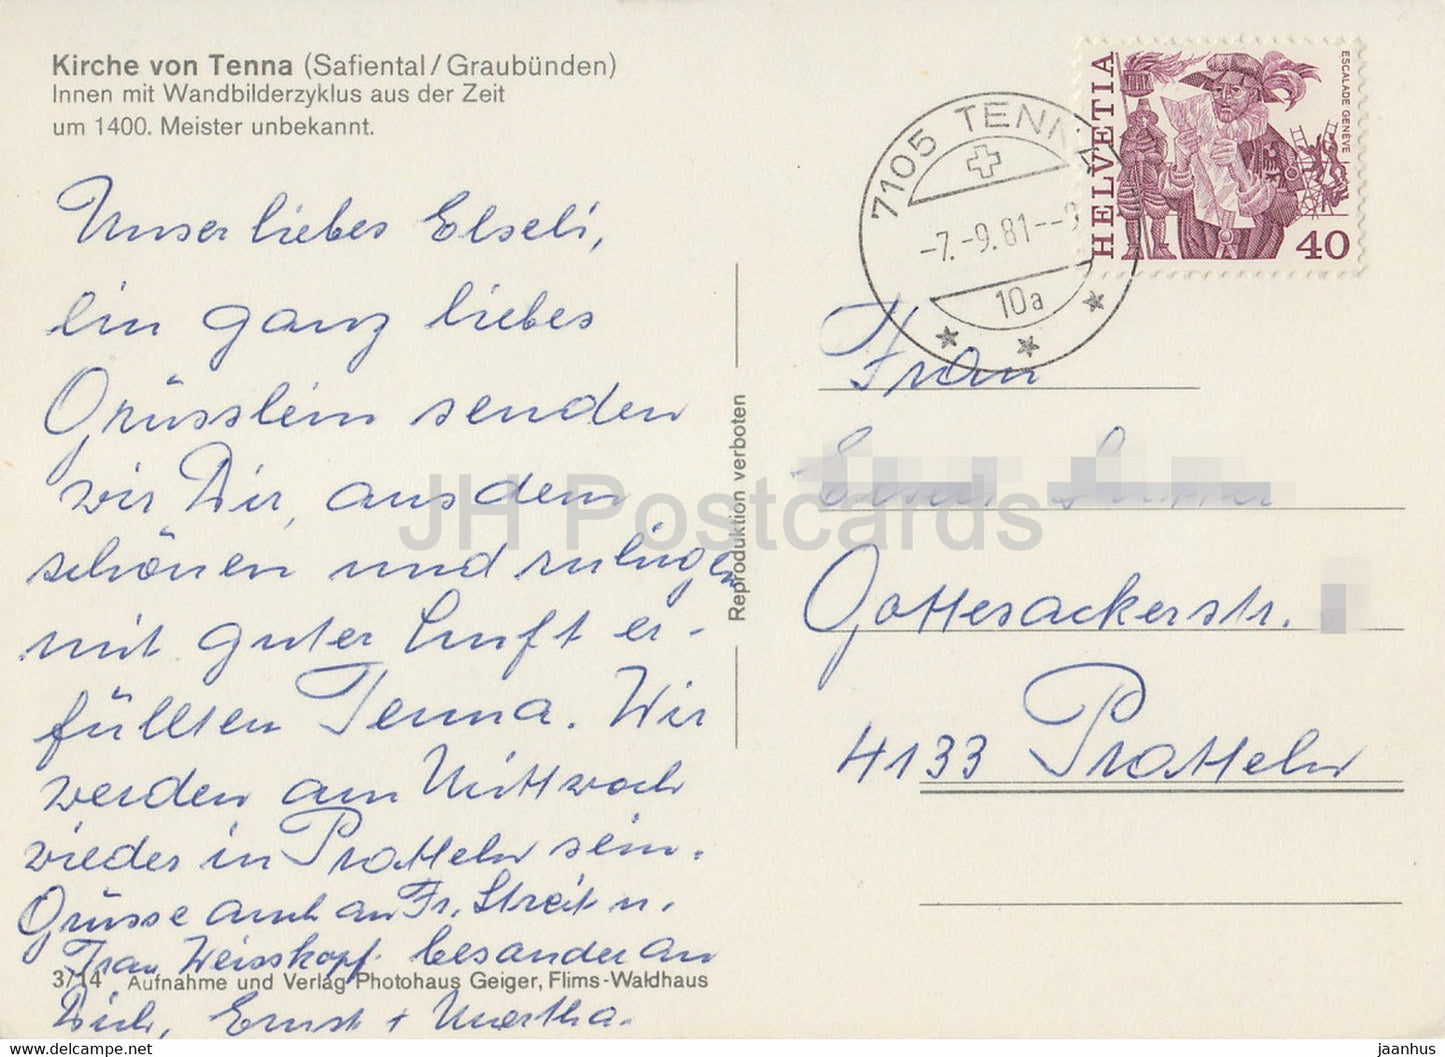 Kirche von Tenna (Safiental/Graubünden)
Innen mit Wandbilderzyklus aus der Zeit
um 1400. Meister unbekannt.
Unser liebes Elseli,
ein ganz liebes
Grüsslein senden
wir Dir, aus dem
schönen und ruhigen
mit guter Luft er-
füllten Tenna. Wir
werden am Mittwoch
wieder in Pratteln sein.
Grüsse auch an Fr. Streit u.
Frau Weisskopf. besonder an
3/14 Aufnahme und Verlag Photohaus Geiger, Flims-Waldhaus
Dich, Ernst + Martha.
Reproduktion verboten
7105 TENNA
-7.-9.81--9
10a
HELVETIA
ESCALADE GENÈVE
40
Frau
Gottesackerstr.
4133 Pratteln
JH Postcards
jaanhus - https://www.